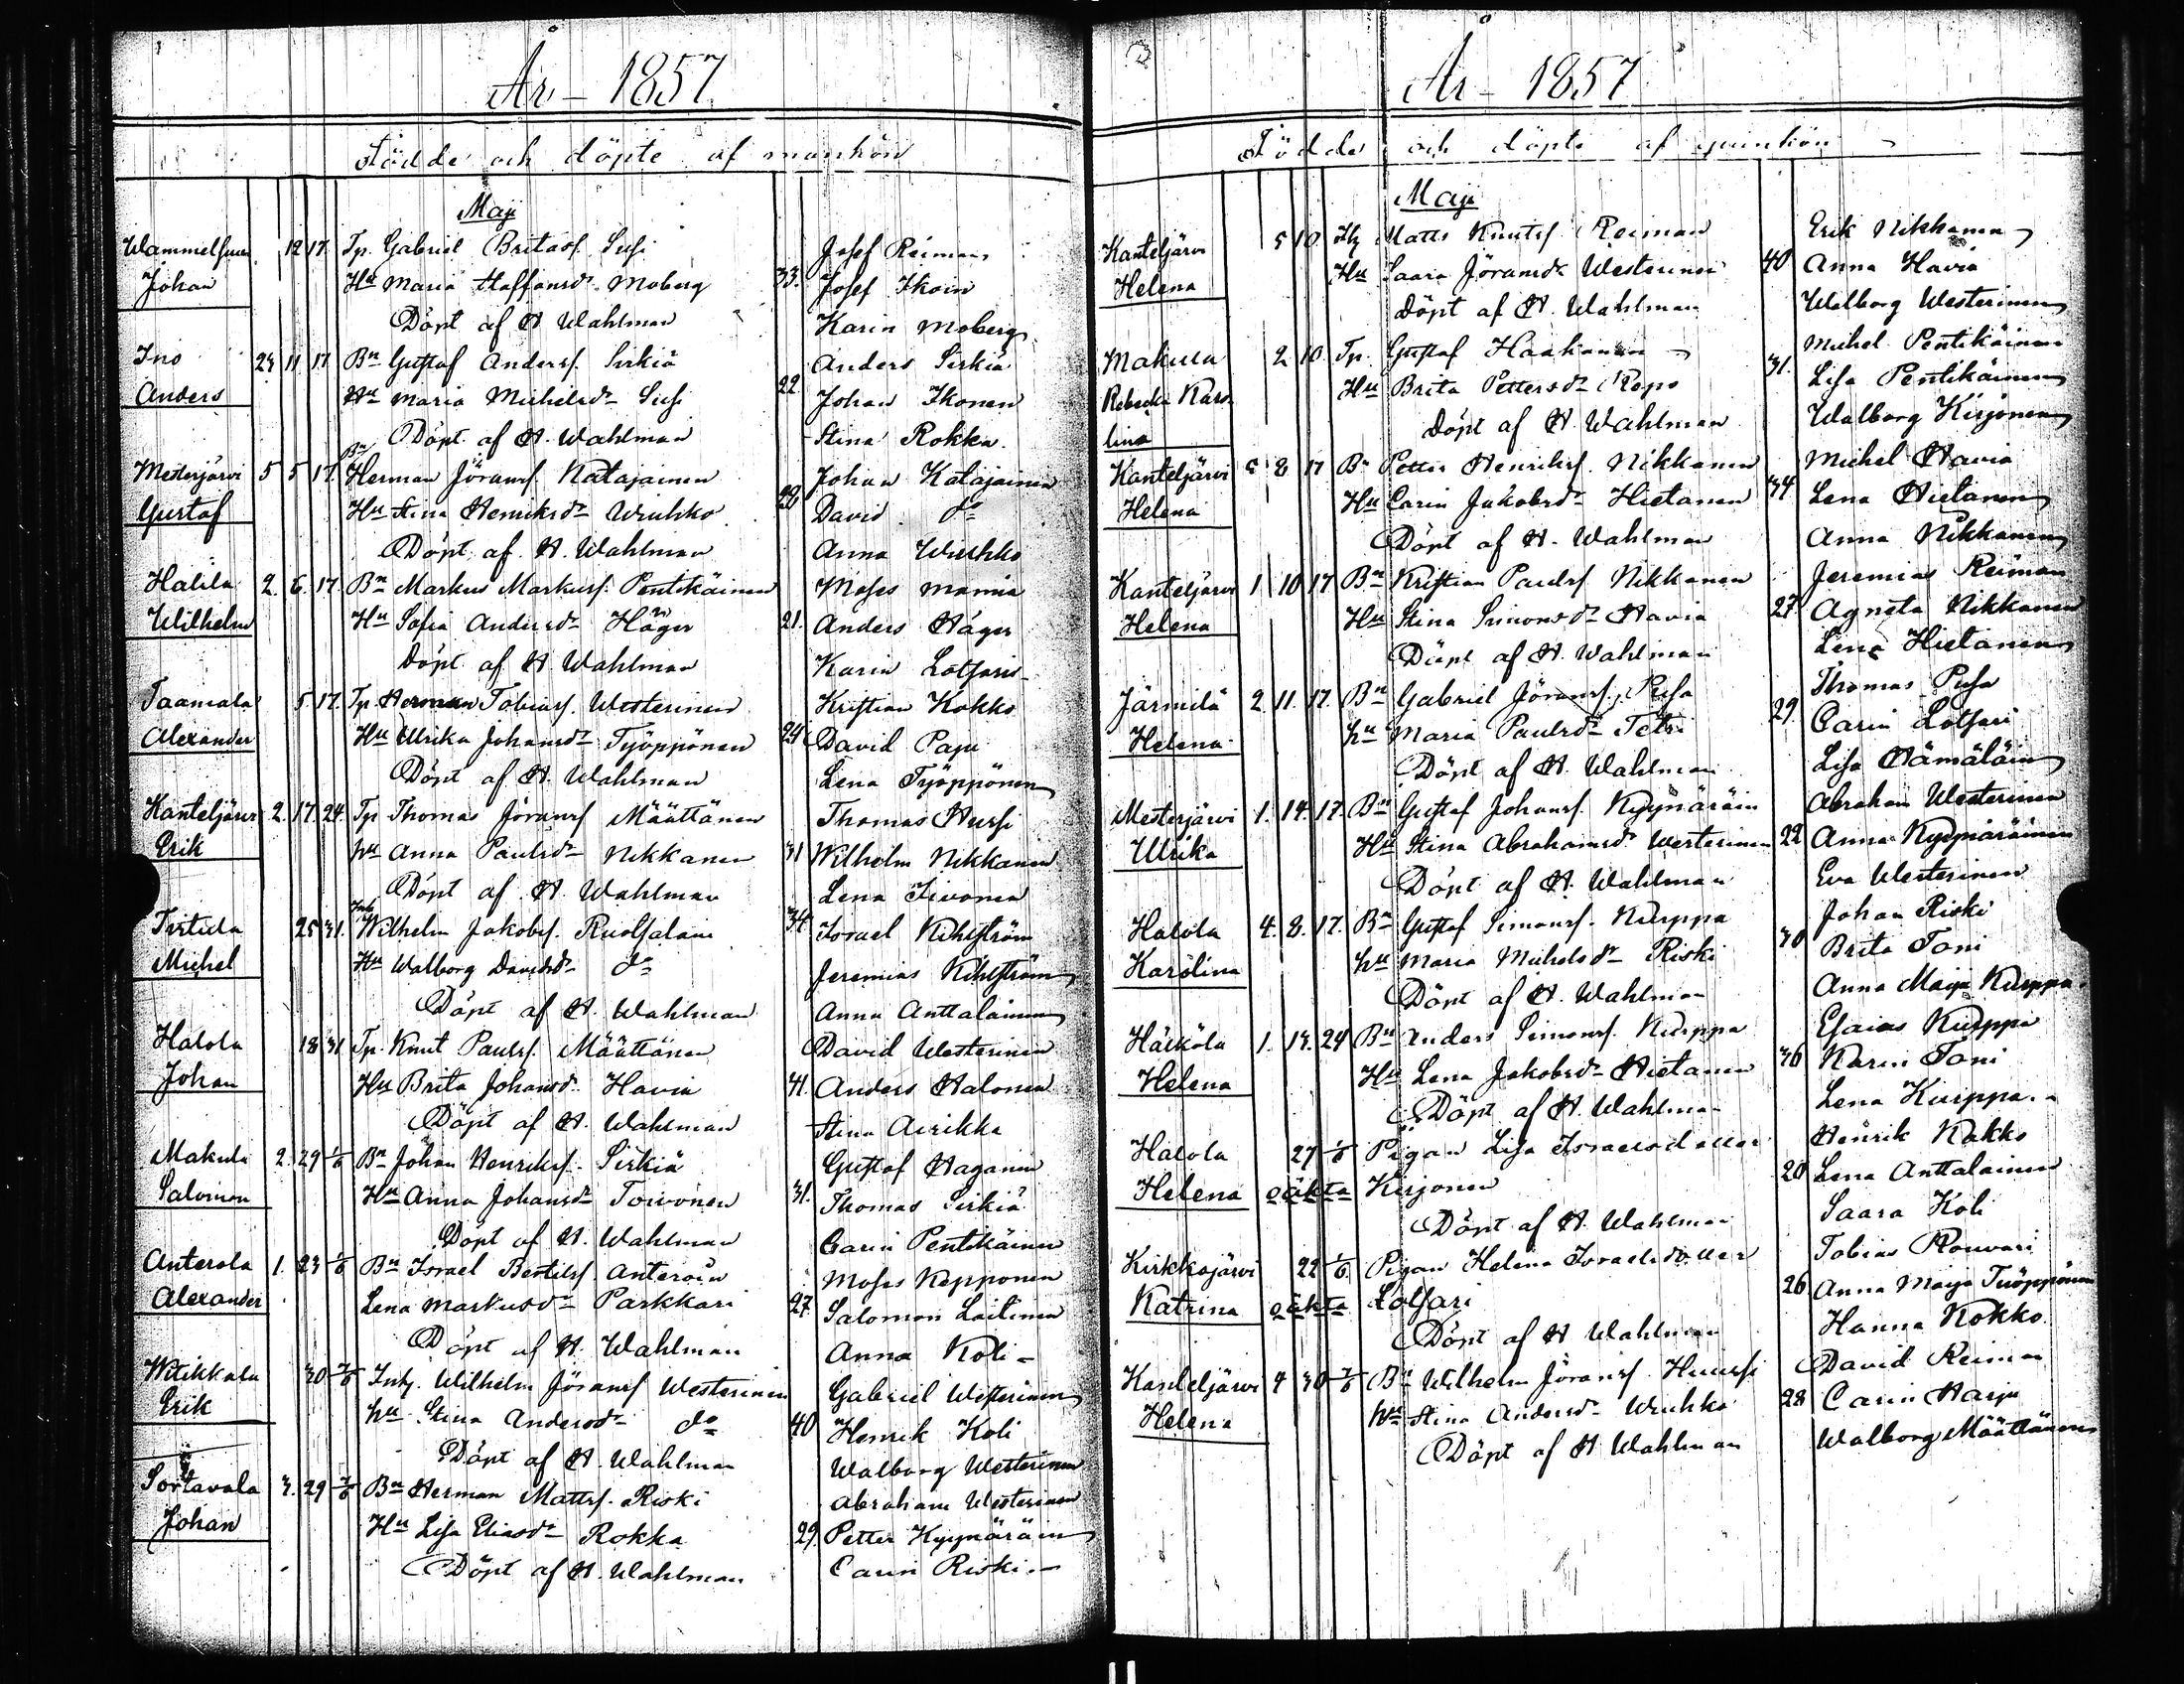 År - 1857
Födde och döpte af mankön
Maji
Wammelsuu 12 17. Tp. Gabriel Britasf. Susi Josef Reiman
Johan Hu Maria Staffansdr Moberg 33. Josef Ikoin
Döpt af A Wahlman Karin Moberg
Ino 24 11 17 Bn Gustaf Andersf. Sirkiä Anders Sirkiä
Anders Hu Maria Michelsdr Susi 22 Johan Ikonen
Döpt af A. Wahlman Stina Rokka
Mesterjärvi 5 5 17. Bn Herman Jöransf. Katajainen Johan Katajainen
Gustaf Hu Stina Henriksdr Wiuhko 28 David do
Döpt af A. Wahlman Anna Wiuhko
Halila 2. 6. 17. Bn Markus Markusf. Pentikäinen Moses Mamia
Wilhelm Hu Sofia Andersdr Häger 21. Anders Häger
Döpt af A Wahlman Karin Lotsari
Taamala 5. 17. Tp. Herman Tobiasf. Westerinen Kristian Kokko
Alexander Hu Ulrika Johansdr Työppönen 24 David Paju
Döpt af A. Wahlman Lena Työppönen
Kanteljärvi 2. 17. 24. Tp Thomas Jöransf Määttänen Thomas Hursi
Erik hu Anna Paulsdr Nikkanen 31 Wilhelm Nikkanen
Döpt af A. Wahlman Lena Toivonen
Tirtula 25 31. Inh Wilhelm Jakobsf. Ruotsalain 34 Israel Kihlström
Michel Hu Walborg Davidsdr do Jeremias Kihlström
Döpt af A. Wahlman Anna Anttalainen
Halola 18 31 Tp. Knut Paulsf. Määttänen David Westerinen
Johan Hu Brita Johansdr Havia 41. Anders Halonen
Döpt af A. Wahlman Stina Airikka
Makula 2. 29 1/6 Bn Johan Henriksf. Sirkiä Gustaf Haganen
Salomon Hu Anna Johansdr Toivonen 31. Thomas Sirkiä
Döpt af A. Wahlman Carin Pentikäinen
Anterola 1. 23 1/6 Bn Israel Bertilsf. Anteroin Moses Kepponen
Alexander Lena Markusdr Parkkari 27. Salomon Laitinen
Döpt af A. Wahlman Anna Koli -
Witikkala 30 7/6 Inh. Wilhelm Jöransf Westerinen Gabriel Westerinen
Erik hu Stina Andersdr do 40 Henrik Koli
Döpt af A. Wahlman Walborg Westerinen
Sortavala 3. 29 7/6 Bn Herman Mattsf. Riski Abraham Westerinen
Johan Hu Lisa Eliasdr Rokka 29. Petter Kyynäräin
Döpt af A. Wahlman Carin Riski. -
År - 1857
Födde och döpte af qvinkön
Maji
Kanteljärvi 5 10 Matts Knutsf Reiman Erik Nikkanen
Helena Hu Saara Jöransdr Westerinen 40 Anna Havia
Döpt af A. Wahlman Walborg Westerinen
Makula 2 10 Tp. Gustaf Haakanen Michel Pentikäinen
Rebecka Karo Hu Brita Pettersdr Repo 31. Lisa Pentikäinen
lina Döpt af A. Wahlman Walborg Kirjonen
Kanteljärvi 5 8 17 Bn Petter Henriksf. Nikkanen Michel Havia
Helena Hu Carin Jakobsdr Hietanen 34 Lena Hietanen
Döpt af A. Wahlman Anna Nikkanen
Kanteljärvi 1 10 17 Bn Kristian Paulsf Nikkanen Jeremias Reiman
Helena Hu Stina Simonsdr Havia 27. Agneta Nikkanen
Döpt af A. Wahlman Lena Hietanen
Järmilä 2. 11. 17. Bn Gabriel Jöransf. Pusa Thomas Pusa
Helena hu Maria Paulsdr Tetri 29. Carin Lotsari
Döpt af A. Wahlman Lisa Hämäläin
Mesterjärvi 1. 14. 17. Bn Gustaf Johansf. Kyynäräin Abraham Westerinen
Ulrika Hu Stina Abrahamsdr Westerinen 22 Anna Kyynäräinen
Döpt af A. Wahlman Eva Westerinen
Halola 4. 8. 17. Bn Gustaf Simonsf. Kurppa Johan Riski
Karolina hu Maria Michelsdr Riski 30 Brita Toni
Döpt af A. Wahlman Anna Maija Kurppa.
Häiköla 1. 14. 24 Bn Anders Simonsf. Kurppa Esaias Kurppa
Helena Hu Lena Jakobsdr Hietanen 36 Karin Toni
Döpt af A. Wahlman Lena Kurppa. -
Halola 27 1/6 Pigan Lisa Israelsdotter Henrik Kakko
Helena oäkta Kirjonen 20 Lena Anttalainen
Döpt af A. Wahlman Saara Koli
Kirkkojärvi 22 1/6. Pigan Helena Israelsdotter Tobias Rouvari
Katrina oäkta Lotsari 26 Anna Maija Työppönen
Döpt af A Wahlman Hanna Kokko.
Kanteljärvi 4 30 7/6 Bn Wilhelm Jöransf. Huursi David Reiman
Helena hu Stina Andersdr Wiuhko 28 Carin Harju
Döpt af A Wahlman Walborg Määttänen